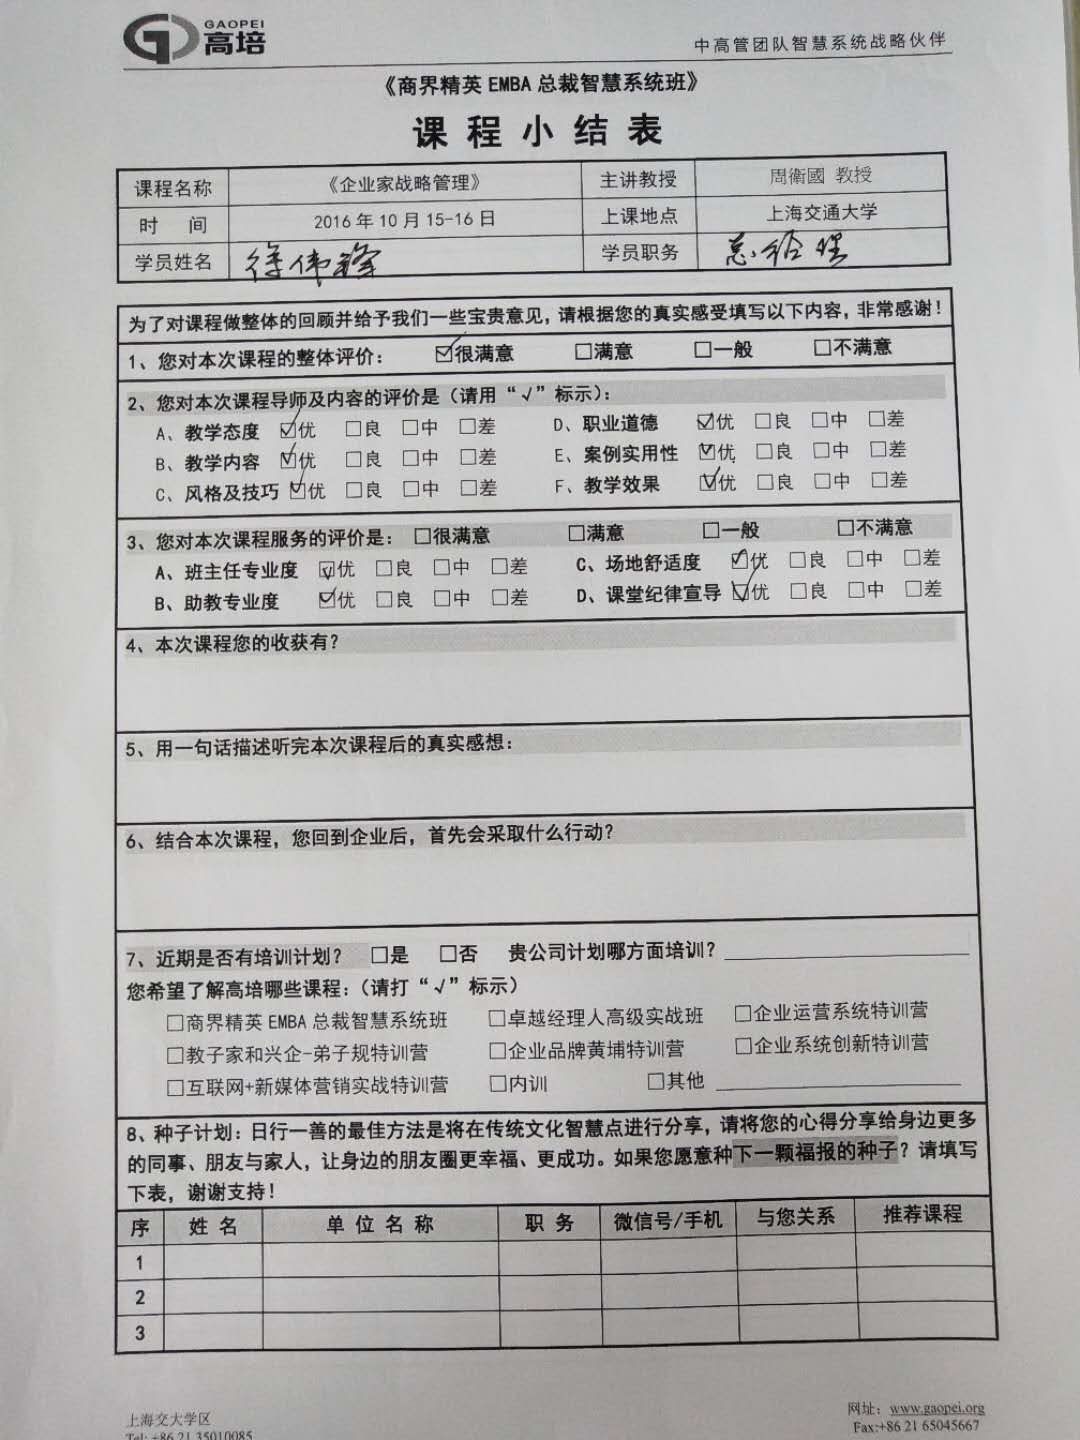 GAOPEI
高培
中高管团队智慧系统战略伙伴
《商界精英 EMBA 总裁智慧系统班》
课 程 小 结 表
课程名称 《企业家战略管理》 主讲教授 周衛國 教授
时 间 2016 年 10 月 15-16 日 上课地点 上海交通大学
学员姓名 徐伟锋 学员职务 总经理
为了对课程做整体的回顾并给予我们一些宝贵意见，请根据您的真实感受填写以下内容，非常感谢！
1、您对本次课程的整体评价： ☑很满意 □满意 □一般 □不满意
2、您对本次课程导师及内容的评价是（请用“√”标示）：
A、教学态度 ☑优 □良 □中 □差 D、职业道德 ☑优 □良 □中 □差
B、教学内容 ☑优 □良 □中 □差 E、案例实用性 ☑优 □良 □中 □差
C、风格及技巧 ☑优 □良 □中 □差 F、教学效果 ☑优 □良 □中 □差
3、您对本次课程服务的评价是： □很满意 □满意 □一般 □不满意
A、班主任专业度 ☑优 □良 □中 □差 C、场地舒适度 ☑优 □良 □中 □差
B、助教专业度 ☑优 □良 □中 □差 D、课堂纪律宣导 ☑优 □良 □中 □差
4、本次课程您的收获有？
5、用一句话描述听完本次课程后的真实感想：
6、结合本次课程，您回到企业后，首先会采取什么行动？
7、近期是否有培训计划？ □是 □否 贵公司计划哪方面培训？
您希望了解高培哪些课程：（请打“√”标示）
□商界精英 EMBA 总裁智慧系统班 □卓越经理人高级实战班 □企业运营系统特训营
□教子家和兴企-弟子规特训营 □企业品牌黄埔特训营 □企业系统创新特训营
□互联网+新媒体营销实战特训营 □内训 □其他
8、种子计划：日行一善的最佳方法是将在传统文化智慧点进行分享，请将您的心得分享给身边更多
的同事、朋友与家人，让身边的朋友圈更幸福、更成功。如果您愿意种下一颗福报的种子？请填写
下表，谢谢支持！
序 姓 名 单 位 名 称 职 务 微信号/手机 与您关系 推荐课程
1
2
3
上海交大学区 网址：www.gaopei.org
Tel: +86 21 35010085 Fax:+86 21 65045667